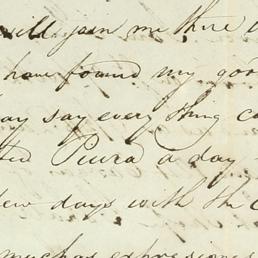 will join me there
have found my goo
ay say every thing c
ted Piura a day
few days with the C
much as expressions